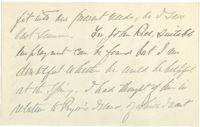 fit into our present needs, as I saw
last summer. For John Reed, suitable
employment can be found but I am
doubtful whether he would be helpful
at the
I had thought of him in
relation to Island, if we want